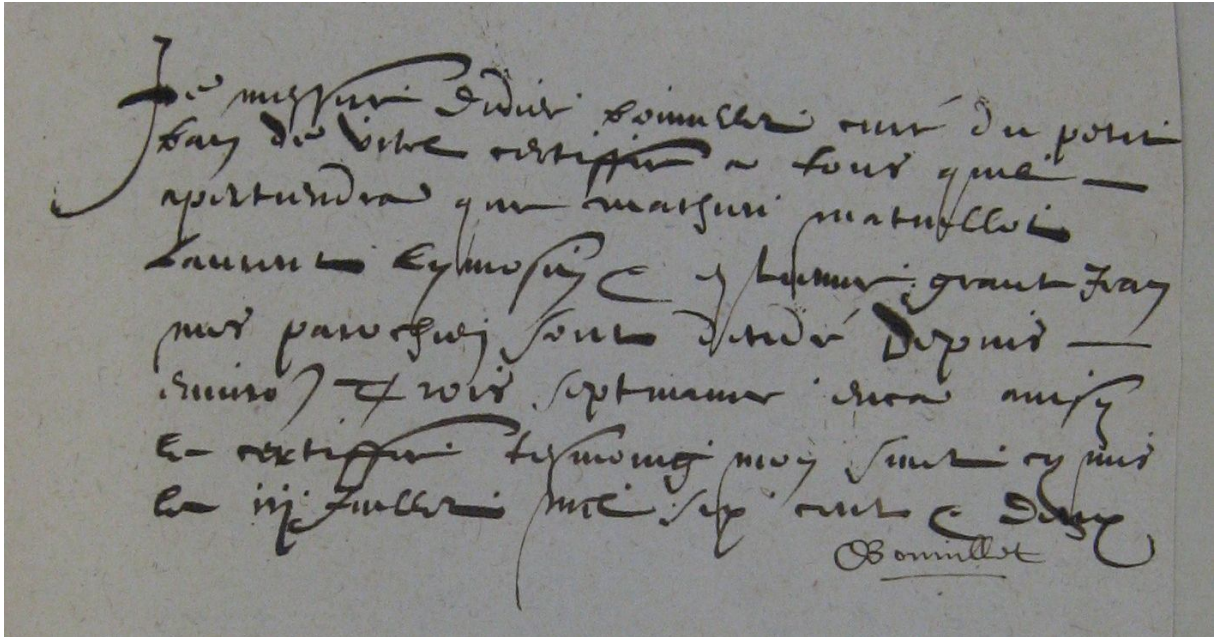 Je messire Didier Bouuillet curé du petit
ban de Vitel certiffie a tous quil
apertiendra que mathieu matuillot
Laurent Lymosin & grant Jean
mes parochien sont decedé depuis
enuiron Trois septmaine enca ainsy
le certiffie tesmoing mon sint cy mis
le iij Juillet mil six cent & deux
Bouuillet